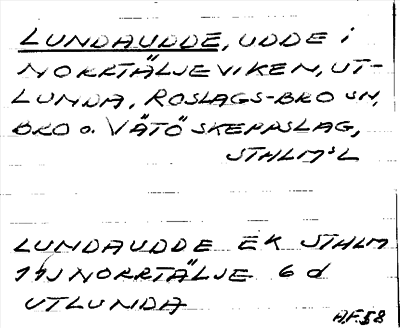 LUNDAUDDE, UDDE i
NORRTÄLJEVIKEN, UT-
LUNDA, ROSLAGS-BRO SN,
BRO O. VÄTÖ SKEPPSLAG,
STHLMS L
LUNDAUDDE EK STHLM
11J NORRTÄLJE 6 d
UTLUNDA
A.F. 58